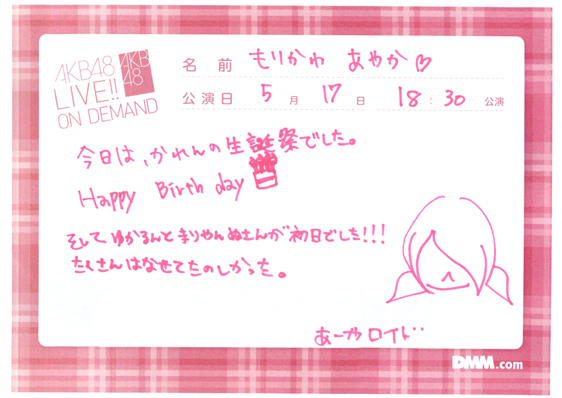 AKB48
LIVE!!
ON DEMAND
AKB
48
名 前 もりかわ あやか♡
公演日 5 月 17 日 18:30 公演
今日は、かれんの生誕祭でした。
Happy Birth day
そして ゆかるんと まりやんぬさんが 初日でした!!!
たくさんはなせてたのしかった。
あーやロイド..
DMM.com